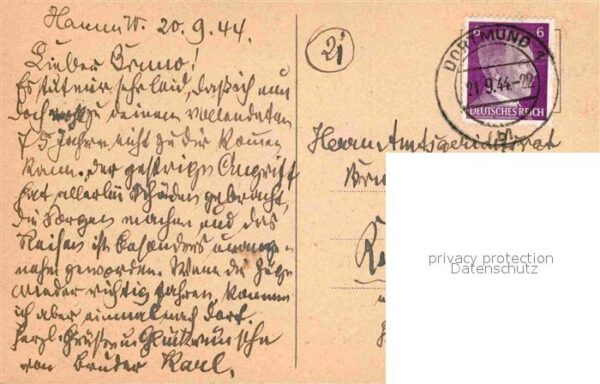 Hamm i/W. 20.9.44.
Lieber Bruno!
Es tut mir sehr leid, daß ich nun
doch nicht zu deinem vollendeten
75 Jahren nicht zu dir kommen
kann. Der gestrige Angriff
hat allerlei Schäden gebracht,
die Sorgen machen und das
Reisen ist besonders unange-
nehm geworden. Wenn die Züge
wieder richtig fahren, komme
ich aber einmal nach dort.
Herzl. Grüße u. Glückwünsche
von Bruder Karl.
21
DORTMUND 2
21.9.44-22
6
DEUTSCHES REICH
Herrn Amtsgerichtsrat
privacy protection
Datenschutz